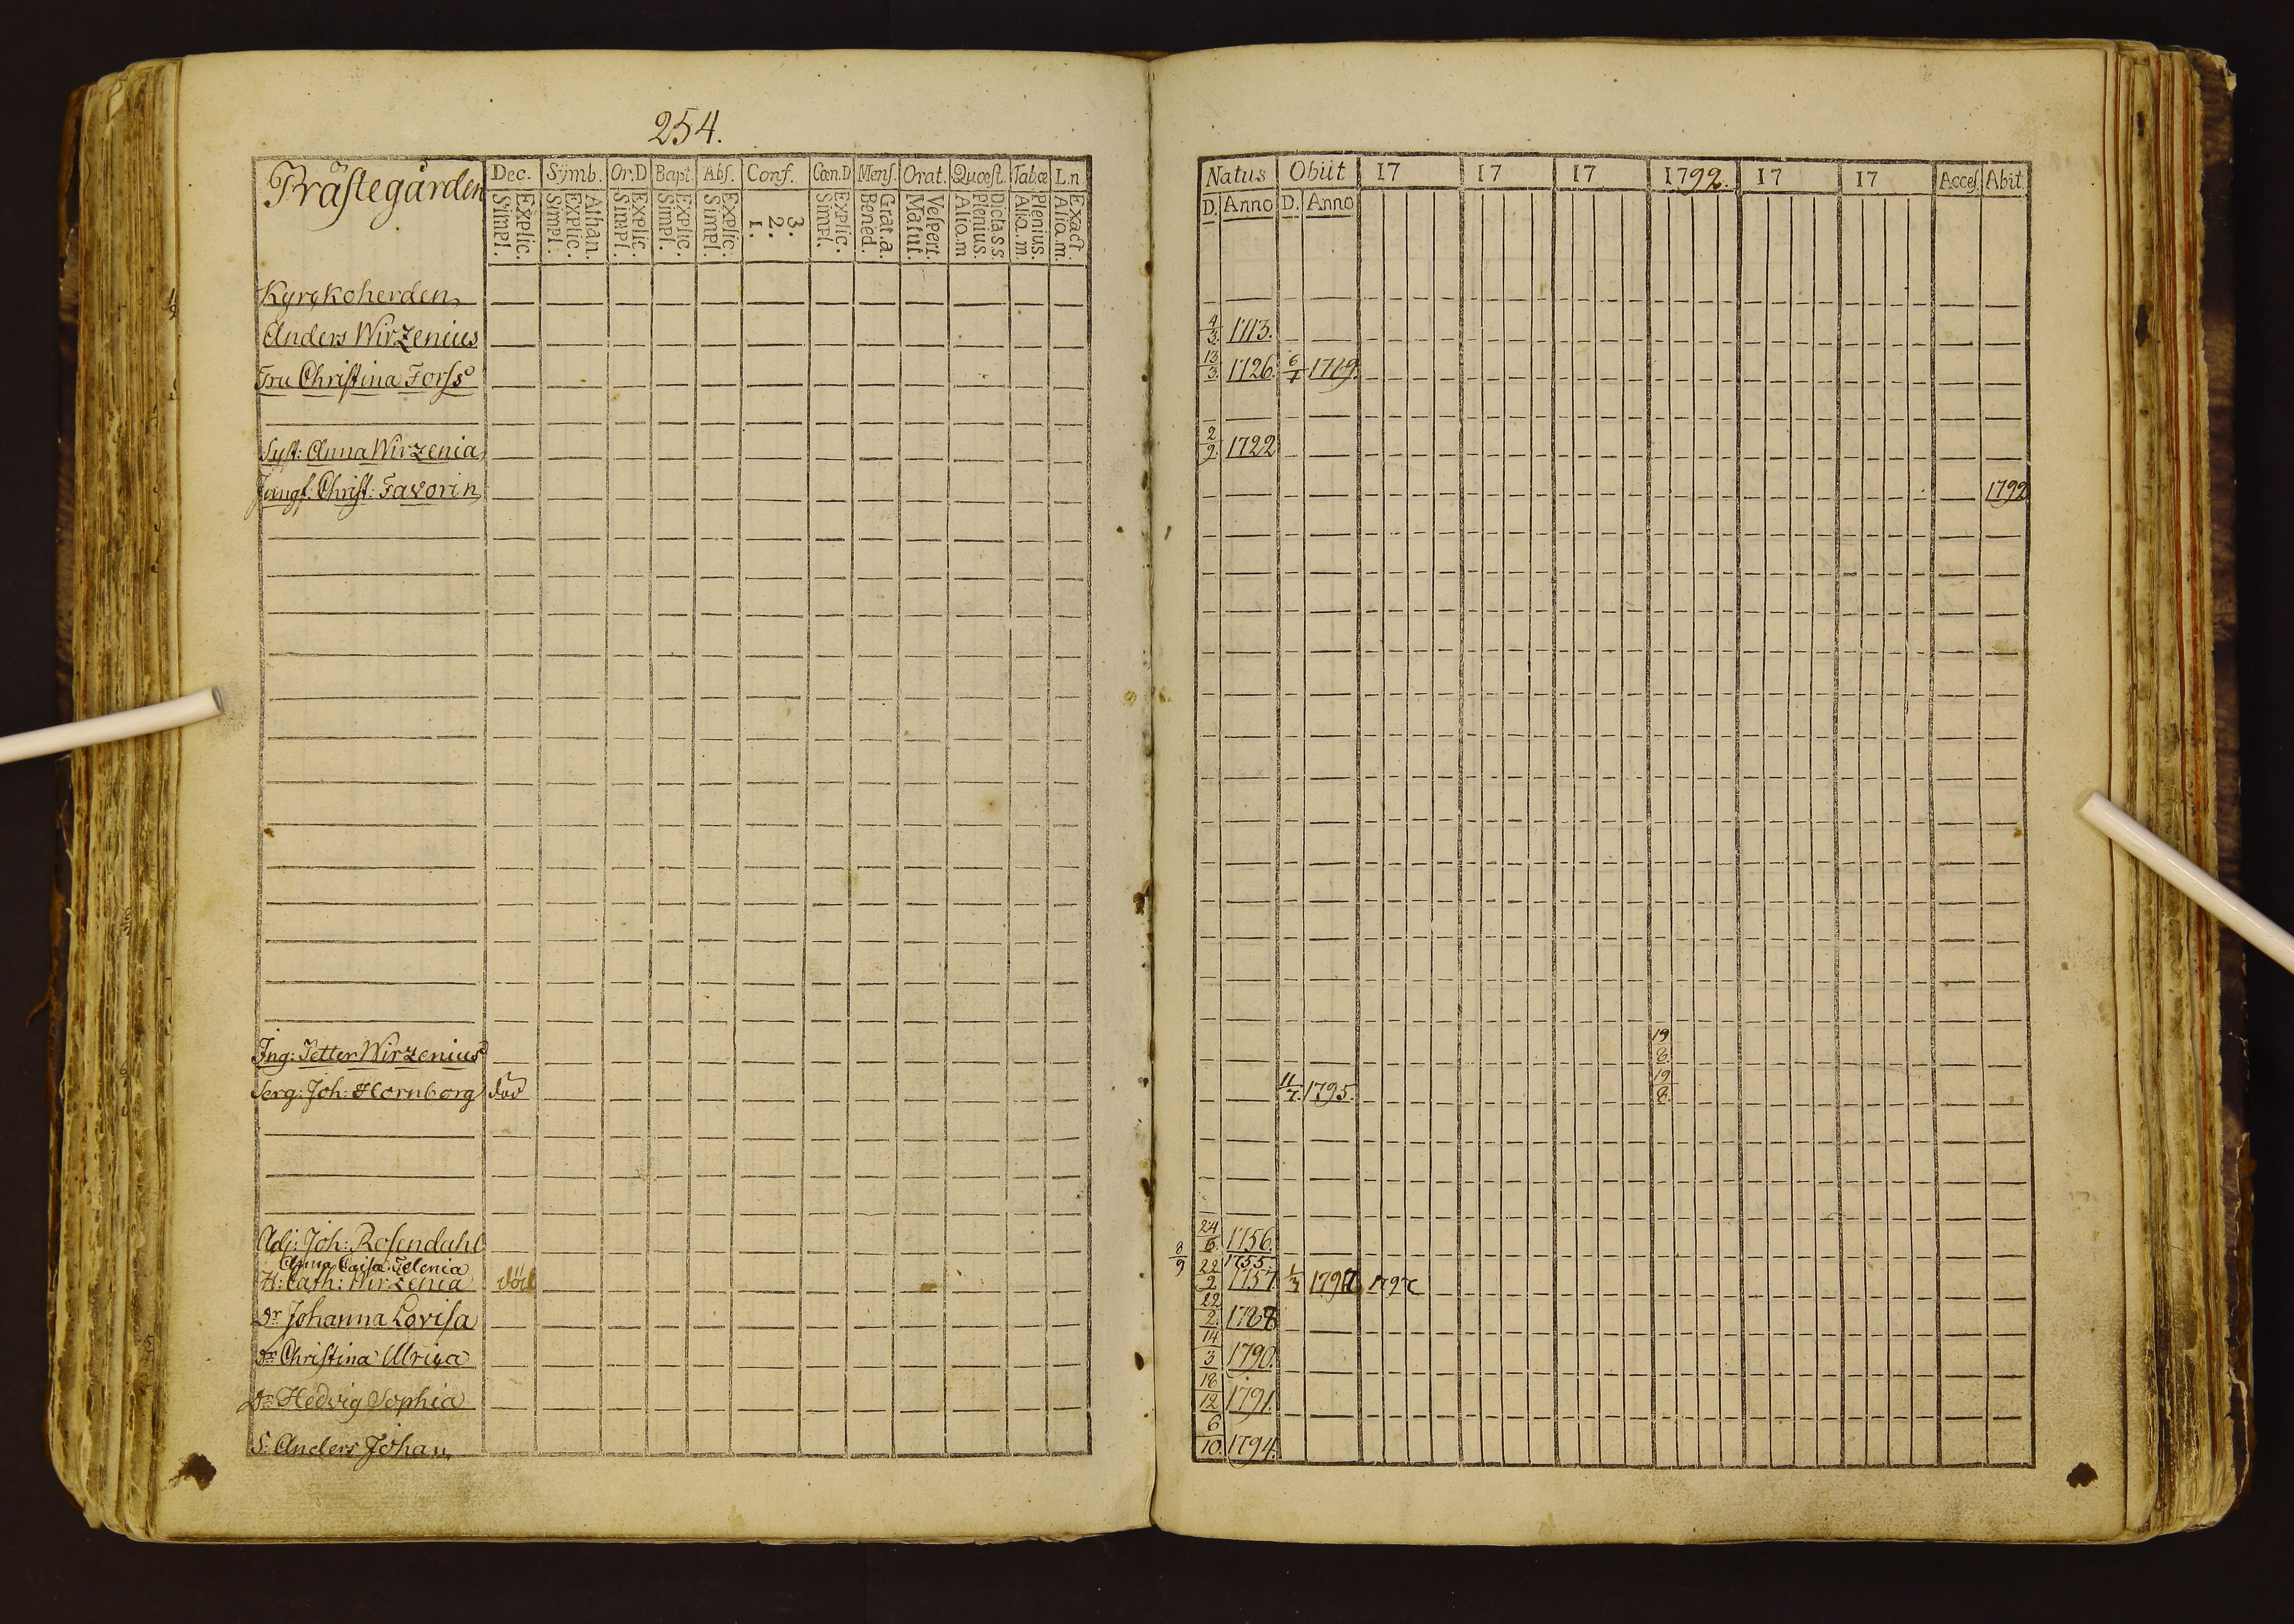 254.
Prästegården Dec. Sÿmb. Or.D Bapt. Abs. Conf. Cœn.D Mens. Orat. Quœst. Tab.œ L.n
Explic. Simpl. Athan. Explic. Simpl. Explic. Simpl. Explic. Simpl. Explic. Simpl. 3. 2. 1. Explic. Simpl. Grat.a. Bened. Vespert. Matut. Dicta.s.s Plenius. Alio.m Plenius. Alio.m. Exact. Alio.m.
Kyrckoherden
Anders Wirzenius
Fru Christina Forss
Syst: Anna Wirzenia
Jungf: Christ: Favorin
Ing: Petter Wirzenius
Serg: Joh: Hornborg död
Adj: Joh: Rosendahl
Anna Caisa
H: Cath: Wirzenia död
Dr Johanna Lovisa
Dr Christina Ulrica
Dr Hedvig Sophia
S: Anders Johan
Natus Obiit 17 17 17 1792. 17 17 Acces. Abit
D. Anno D. Anno
4/3. 1713.
13/3. 1726. 6/7 1789.
2/9. 1722
1792
19/8.
11/7. 1795. 19/8.
24/6. 1756.
8/9 1755.
22/2 1757 1/3 1797 1797
22/2. 1788
14/3 1790.
18/12 1791
6/10. 1794.